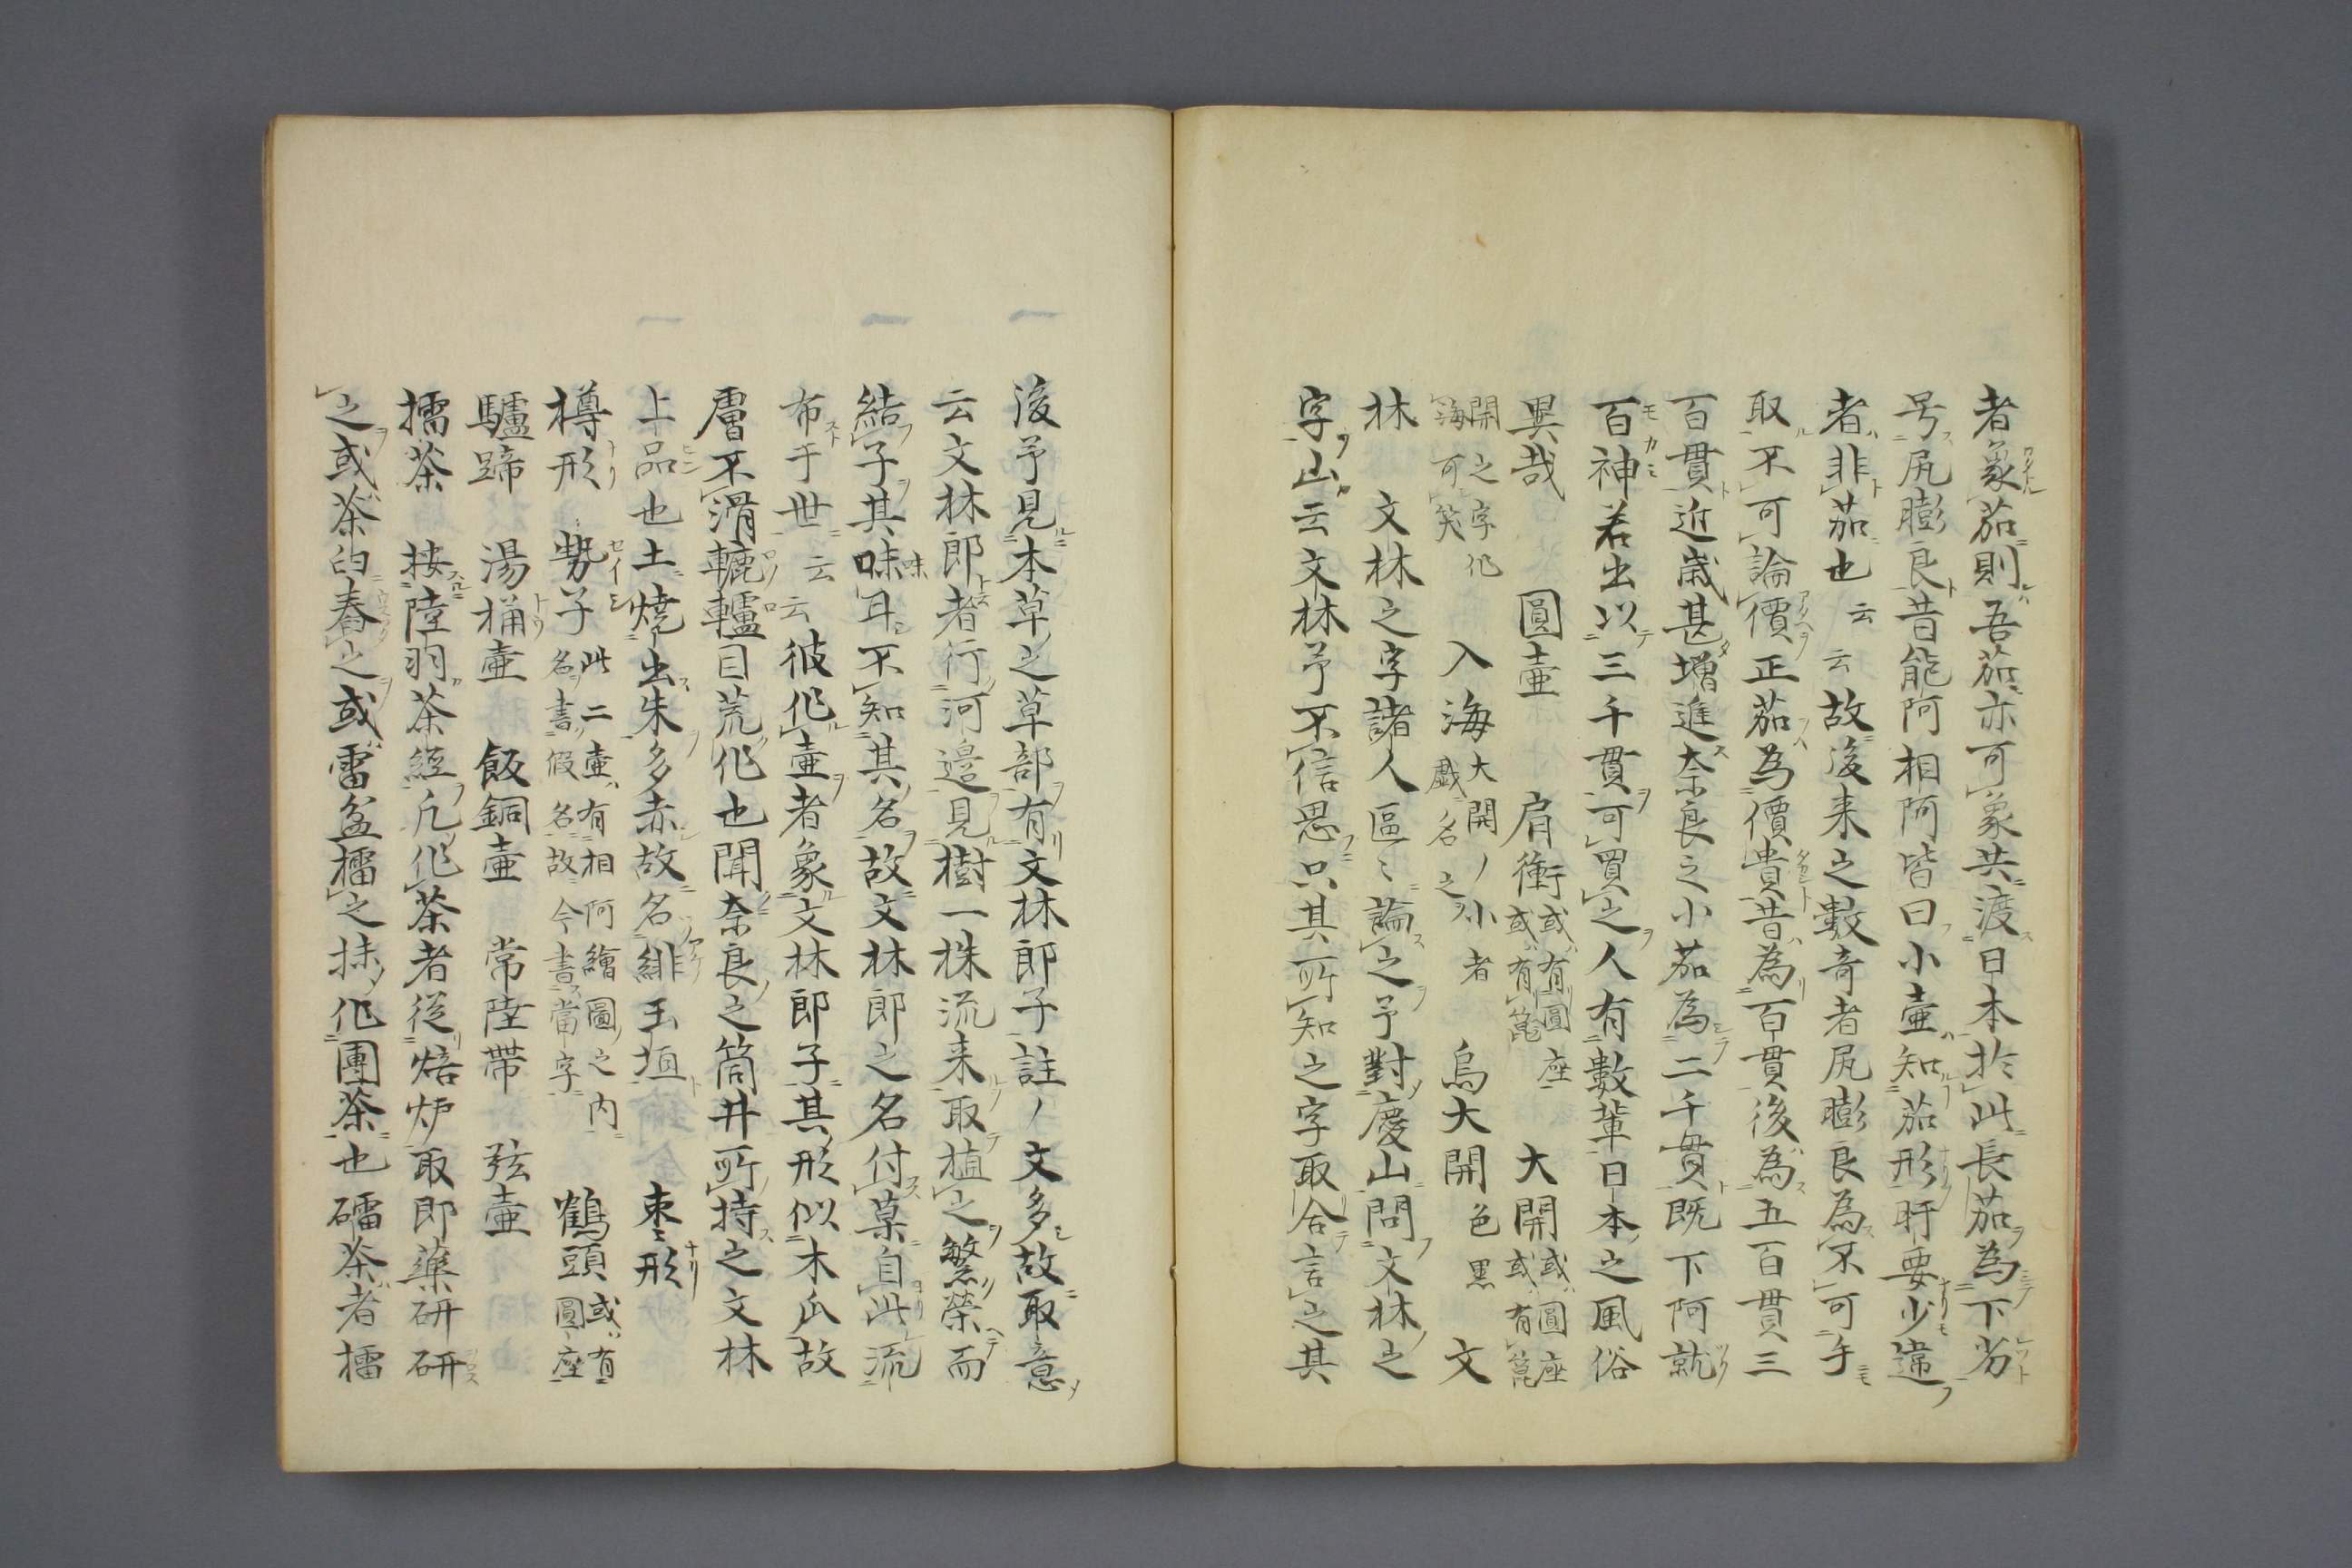 者象茄則吾茄亦可象共渡日本於此長茄為下劣
号尻膨良昔能阿相阿皆曰小壷知茄形肝要少違
者非茄也云云故後来之數奇者尻膨良為不可乎
取不可論價正茄為價貴昔為百貫後為五百貫三
百貫近歳甚増進奈良之小茄為二千貫既下阿就
百神若出以三千貫可買之人有數輩日本之風俗
異哉　圓壷　肩衝或有圓座或有篭　大開或圓座或有篭
開之字作海可笑　入海大開ノ小者戯名之　烏大開色黒　文
林　文林之字諸人區〻論之予對慶山問文林之
字山云文林予不信思只其所知之字取合言之其
後予見本草之草部有文林郎子註ノ文多故取意
云文林郎者行河邉見樹一株流来取植之繁榮而
結子其味耳不知其名故文林郎之名付菓自此流
布于世云云彼作壷者象文林郎子其形似木瓜故
層不滑轆轤目荒作也聞奈良之筒井所持之文林
上品也土燒出朱多赤故名緋玉垣　棗形
樽形　勢子此二壷有相阿繪圖之内名書假名故今書當字　鶴頭或有圓座
驢蹄　湯桶壷　飯銅壷　常陸帶　弦壷
擂茶　按陸羽茶經凡作茶者従焙炉取即藥研研
之或茶的舂之或雷盆擂之抹作團茶也礌茶者擂